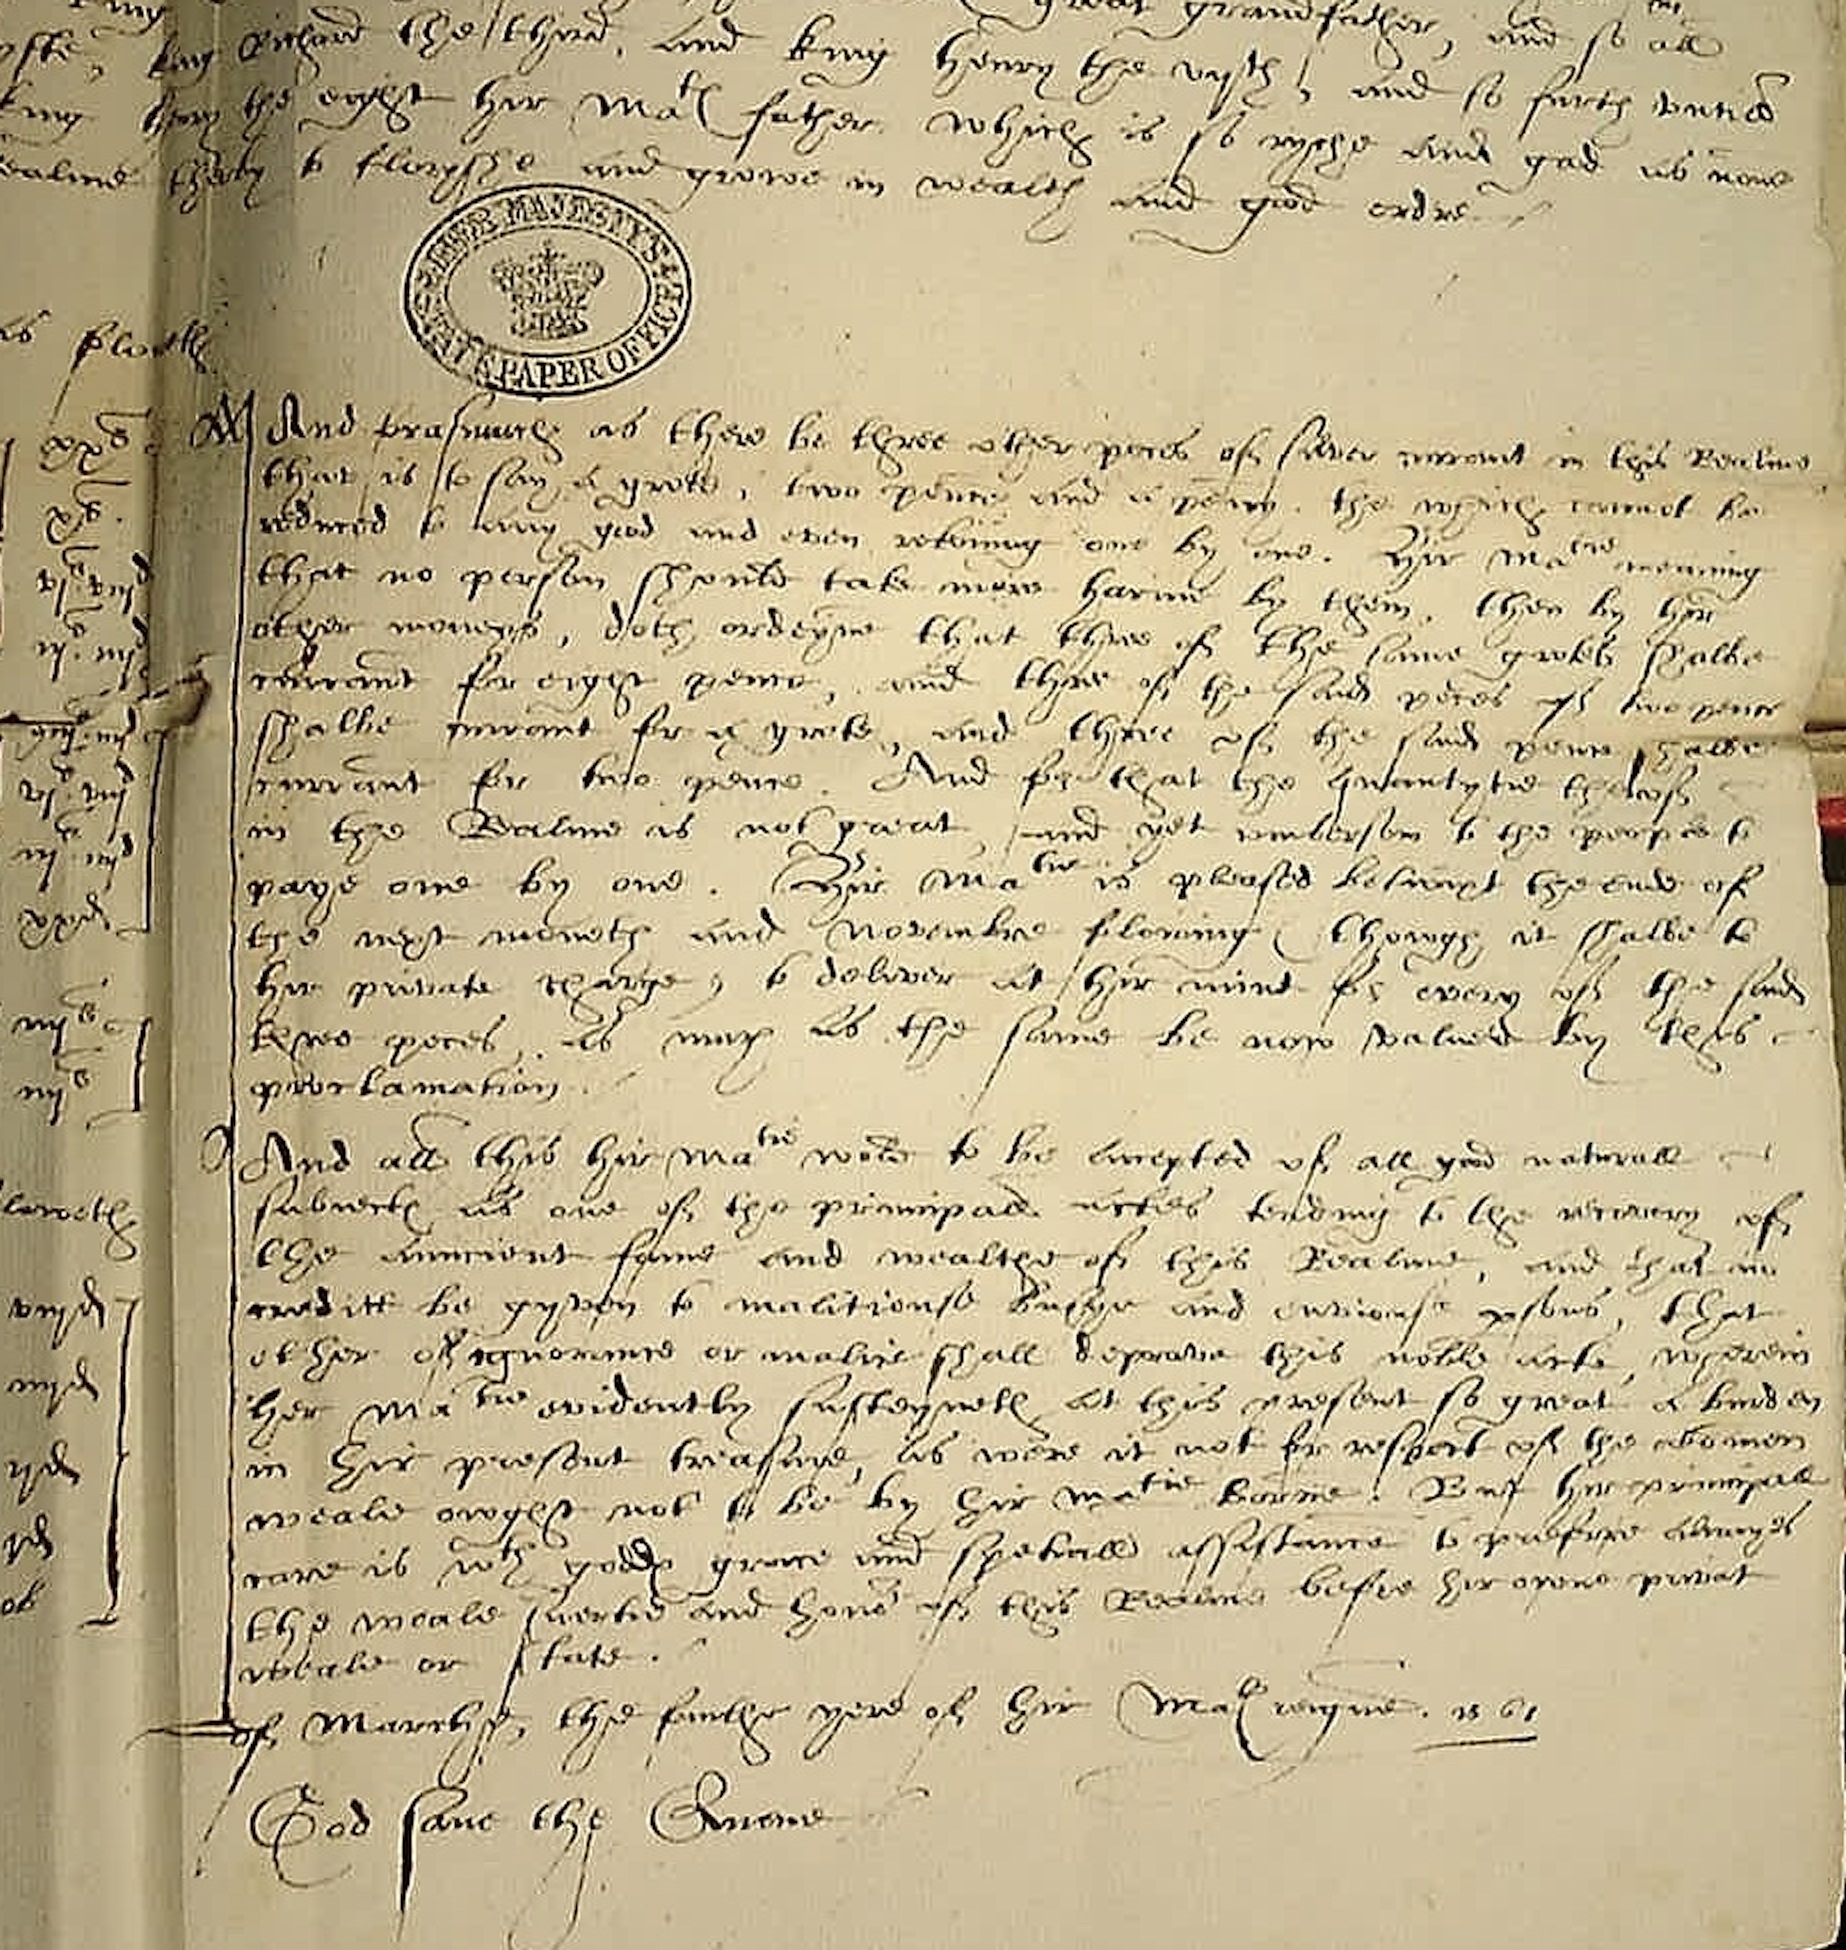 king great grandfather, and so all
king Richard the third, and king Henry the vijth, and so furth untill
king Henry the eight hir Mats father. Which is so ryche and good as none
Realme therby to floryshe and growe in wealth and good ordre
HER MAJESTY'S STATE PAPER OFFICE
as floweth
xxs
xs.
vjs. viijd
iijs. iiijd
vjs. viijd
iijs. iiijd
xxd
iiijs
iijs
viijd
iiijd
ijd
jd
ob
And forasmuch as there be three other peces of silver currant in this Realme
that is to say a grote, two pence and a peny. the which cannot be
reduced to any good and even retorning one by one. Hir Matie meaning
that no person should take more harme by them, then by hir
other moneys, doth ordeyne that three of the same grotes shalbe
currant for eight pence, and three of the said peces of two pence
shalbe currant for a grote, and three of the said pence shalbe
currant for two pence. And for that the quantytie therof
in the Realme is not great, and yet comberson to the people to
paye one by one. Hir Matie is pleased betwixt the ende of
the next moneth and Novembre flowing, thowgh it shalbe to
hir private charge, to deliver at hir mint for every of the said
three peces, as much as the same be now valued by this
proclamation.
And all this hir Matie wold to be accepted of all good naturall
subiects as one of the principall actes tending to the recovery of
the auncient fame and wealthe of this Realme, and that no
creditt be gyven to malitiouse busye and enviouse psons, that
ether of ignorance or malice shall deprave this noble acte, wherein
her Matie evidently susteyneth at this present so great a burden
in hir present treasure, as were it not for respect of the comen
weale owght not to be by hir Matie borne. But hir principall
care is wth godds grace and spetiall assistance to preferre alwayes
the weale suertie and honor of this Realme before hir owne privat
weale or state.
of Marche, the fourthe yere of hir Mats reigne. 1561
God save the Quene